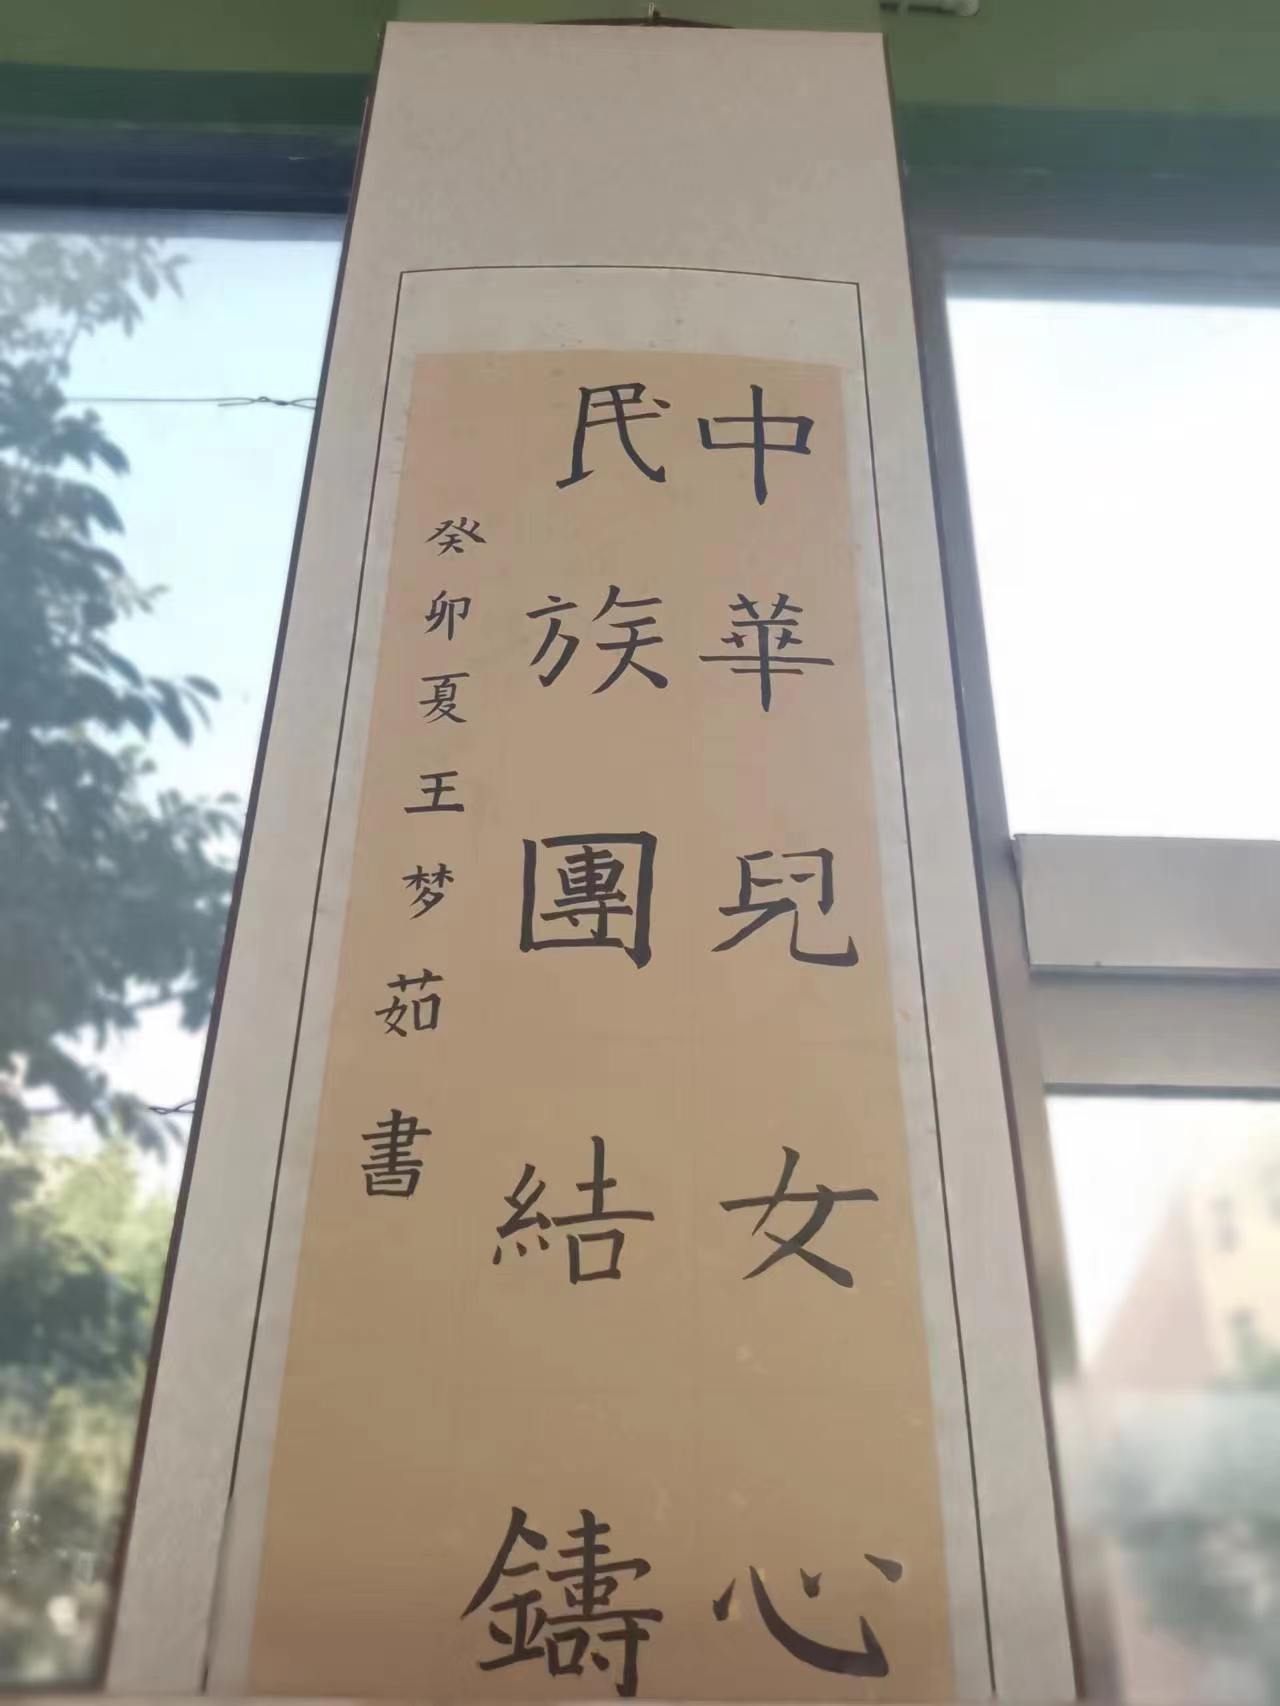 中華兒女心
民族團結鑄
癸卯夏王梦茹書